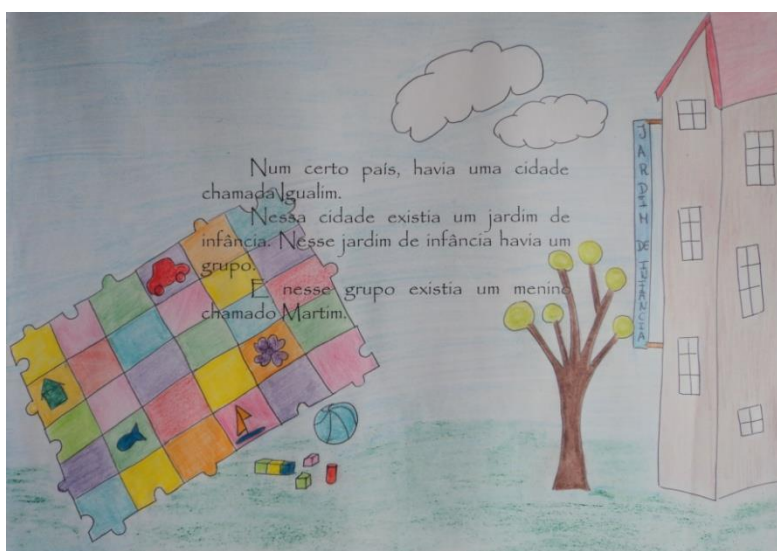 Num certo país, havia uma cidade
chamada Igualim.
Nessa cidade existia um jardim de
infância. Nesse jardim de infância havia um
grupo.
E nesse grupo existia um menino
chamado Martim.
JARDIM DE INFÂNCIA